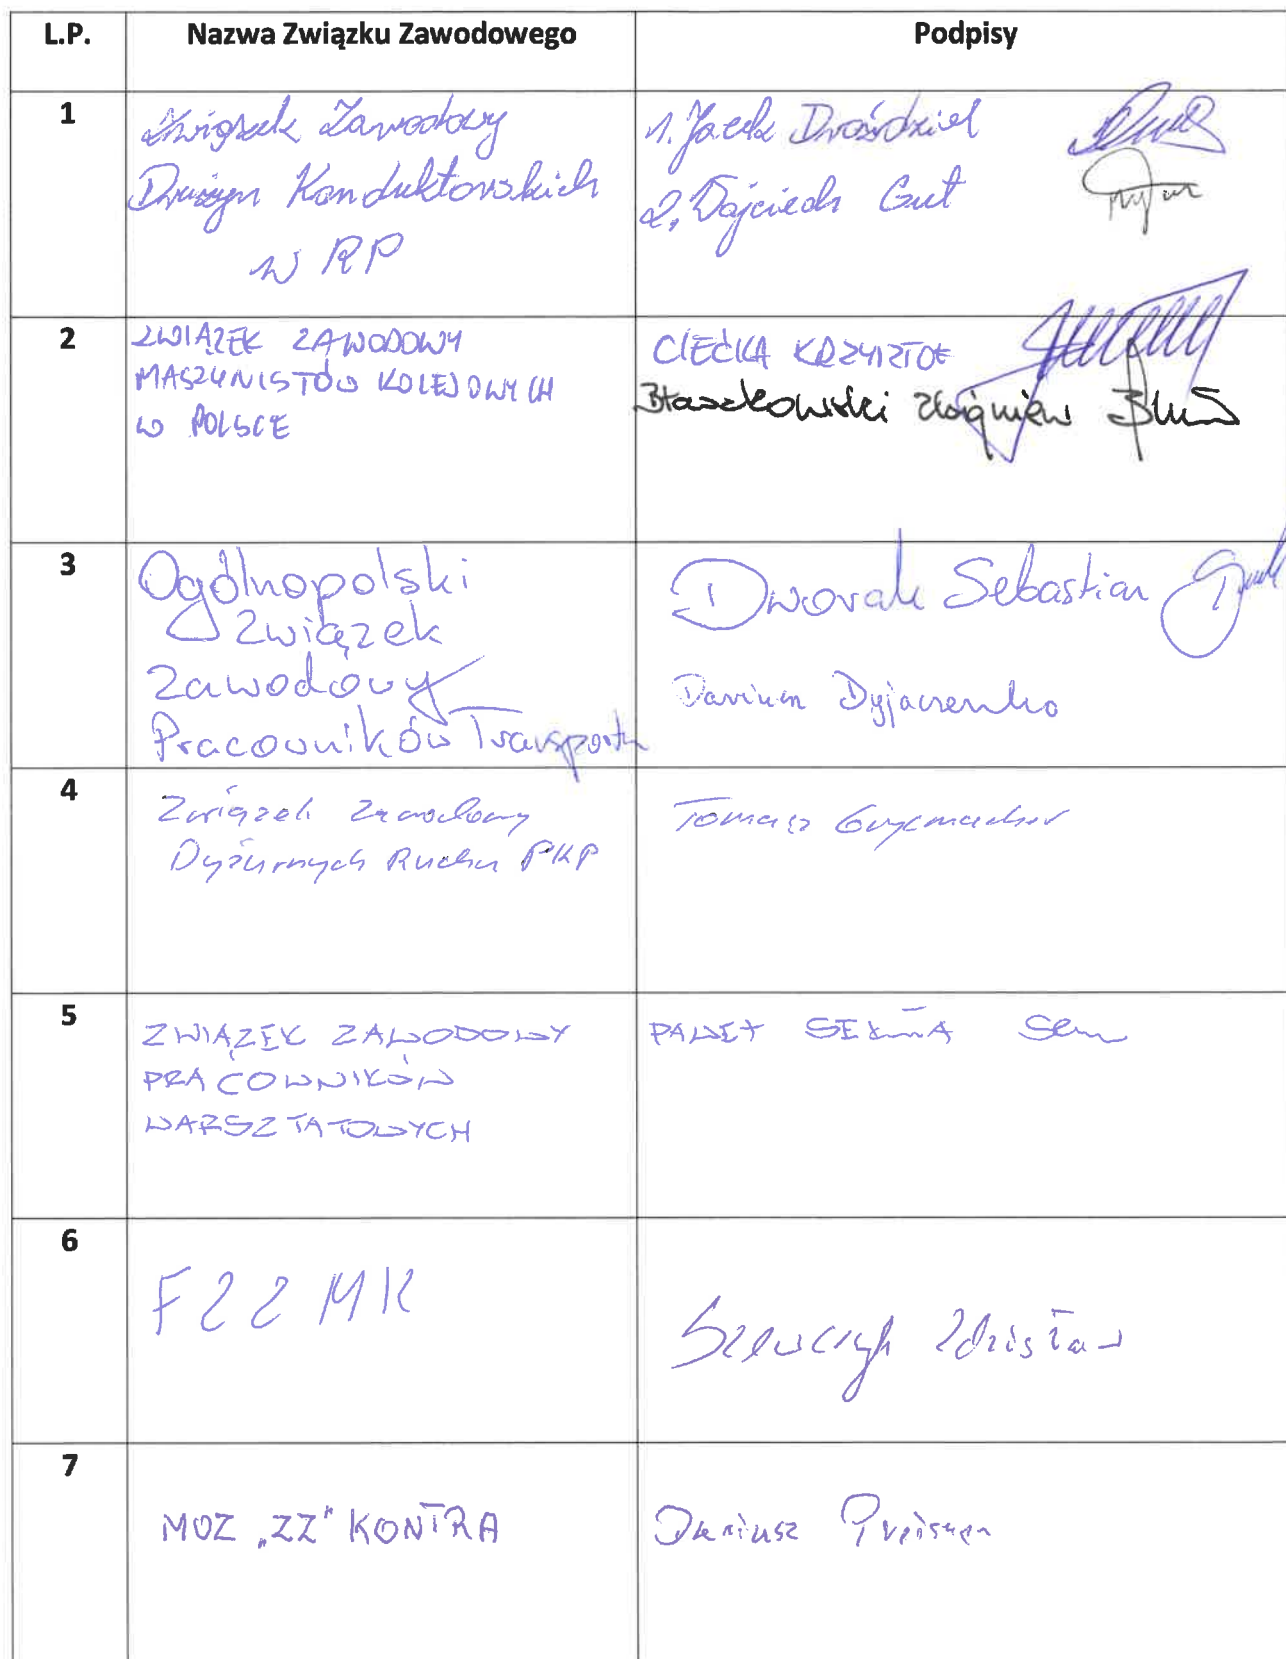 L.P. Nazwa Związku Zawodowego Podpisy
1
Związek Zawodowy
Drużyn Konduktorskich
w RP
1. Jacek Droździel
2. Wojciech Gut
2
ZWIĄZEK ZAWODOWY
MASZYNISTÓW KOLEJOWYCH
W POLSCE
CIEĆKA KRZYSZTOF
Błaszkowski Zbigniew
3
Ogólnopolski
Związek
Zawodowy
Pracowników Transportu
Dworak Sebastian
Dariusz Dyjaczenko
4
Związek Zawodowy
Dyżurnych Ruchu PKP
Tomasz
5
ZWIĄZEK ZAWODOWY
PRACOWNIKÓW
WARSZTATOWYCH
PAWEŁ
6
FZZMK
Szewczyk Zdzisław
7
MOZ „ZZ" KONTRA
Dariusz